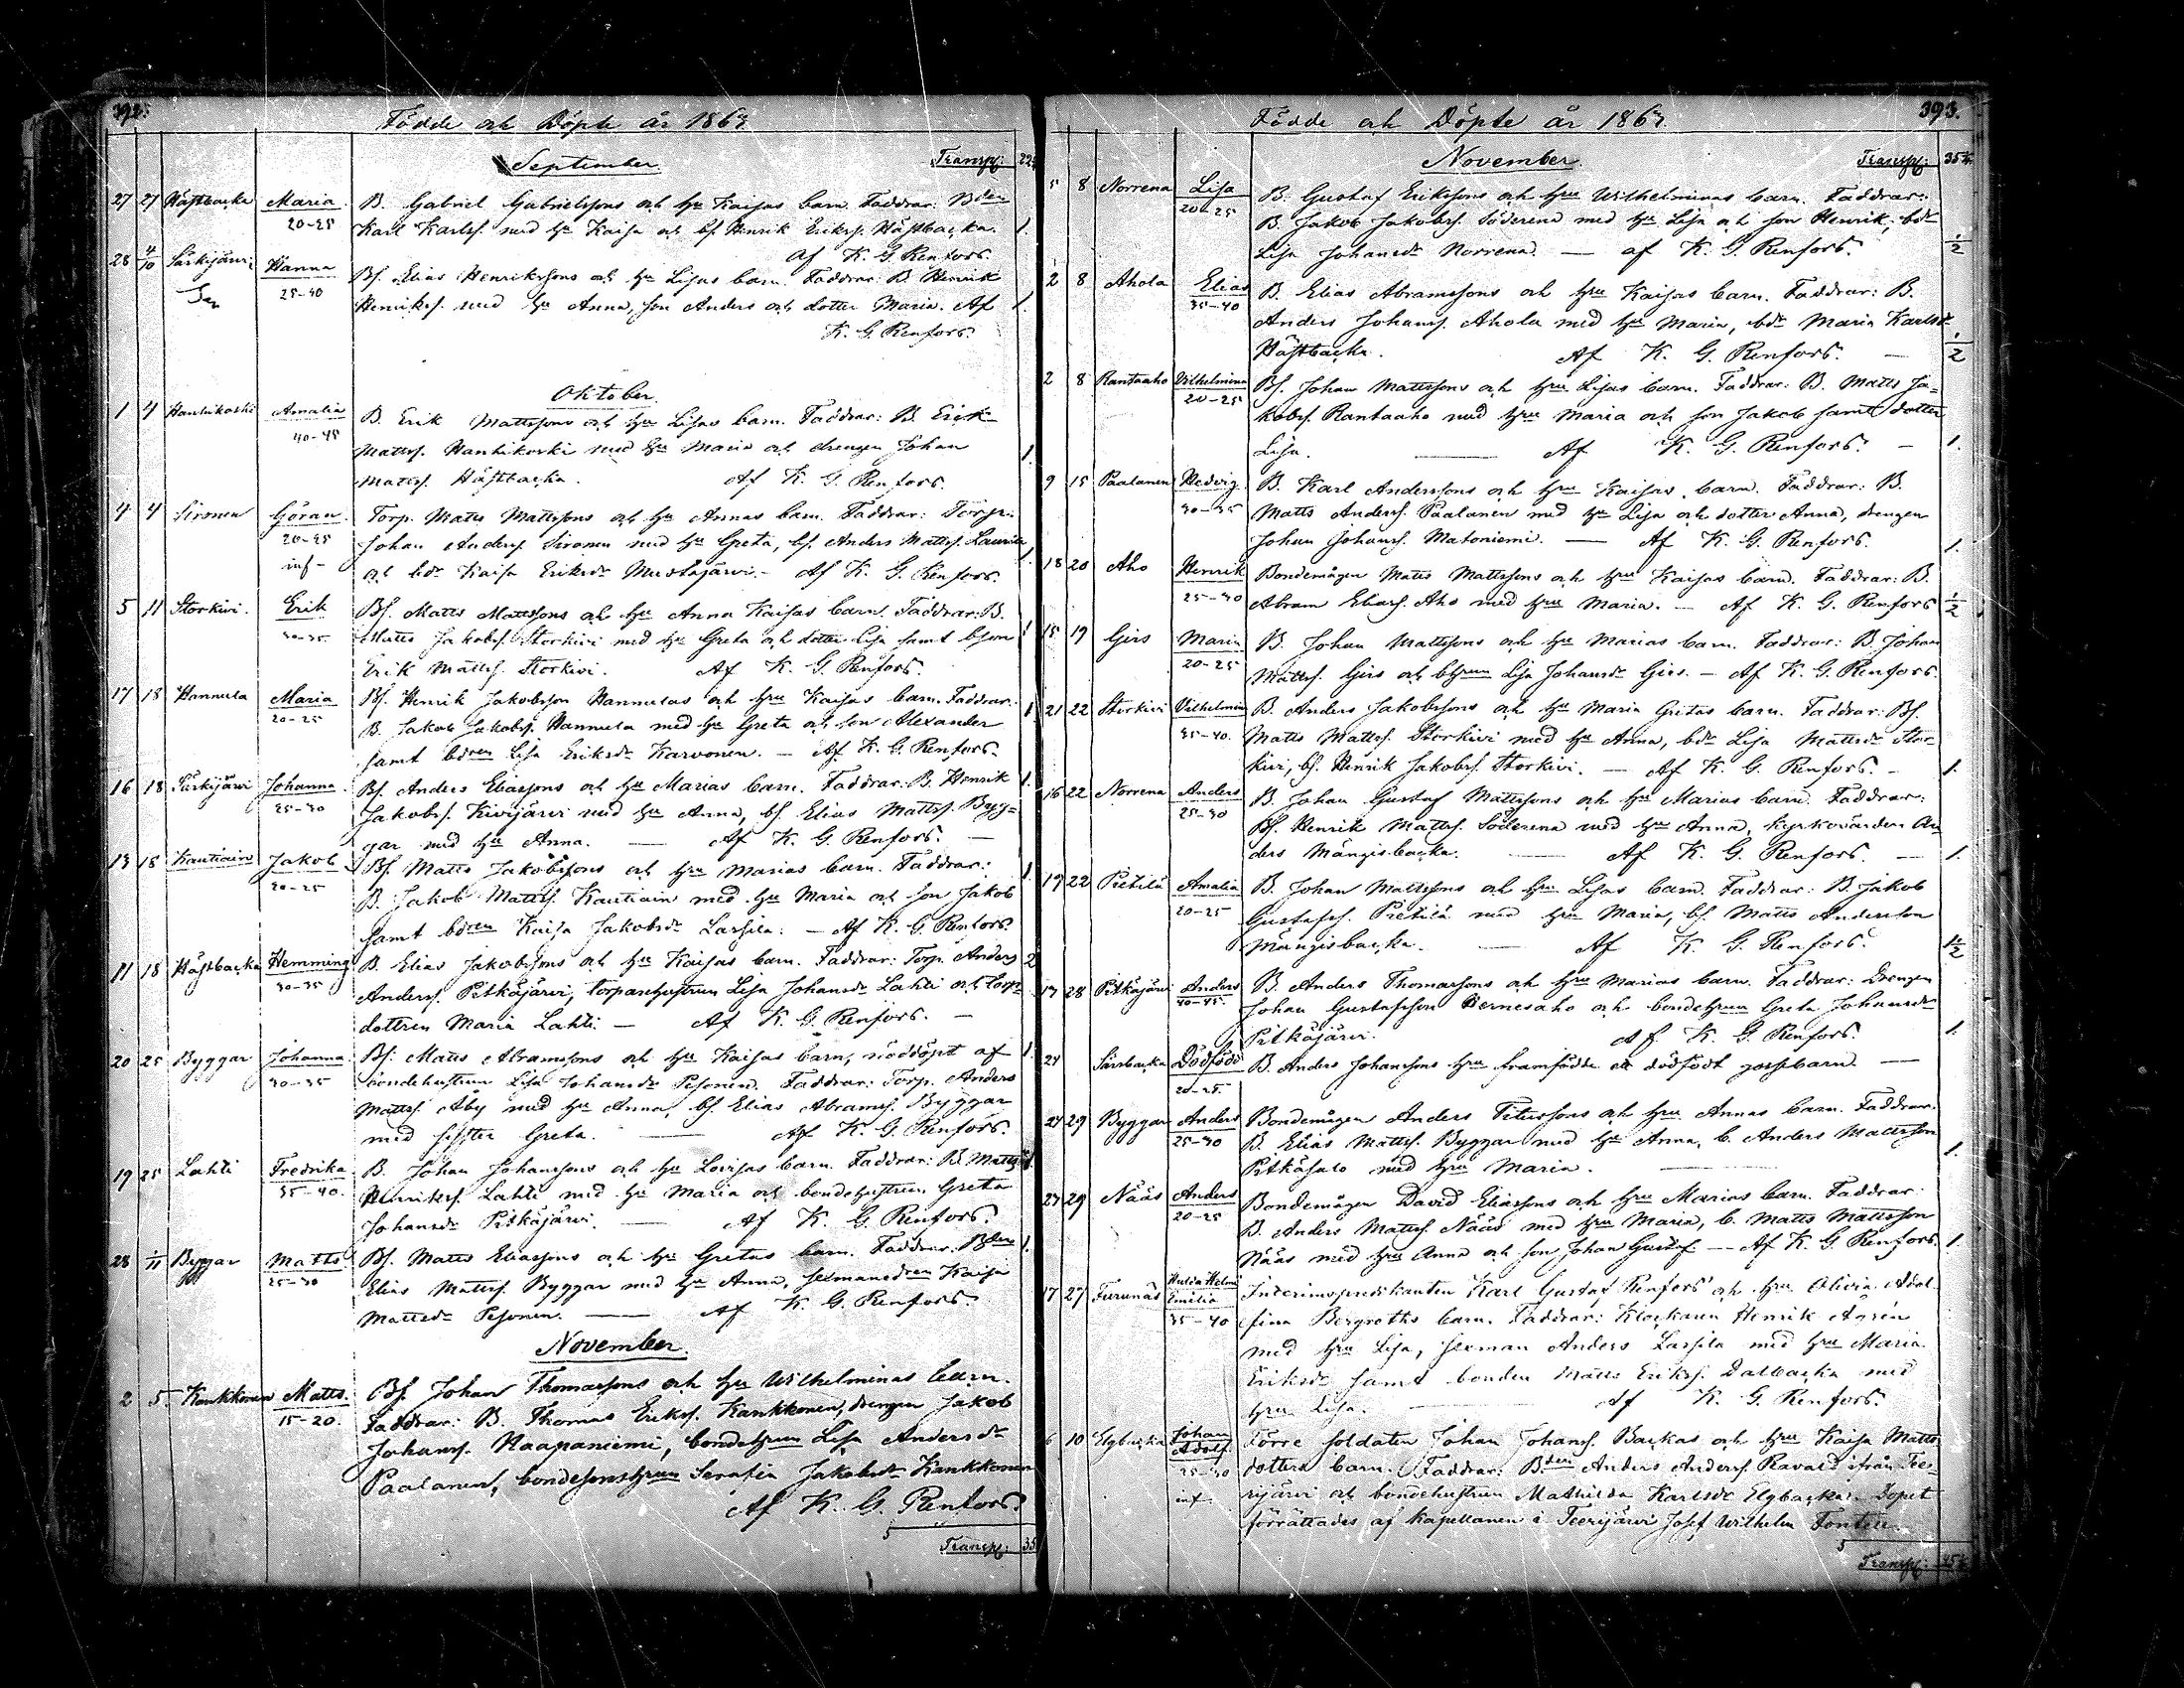 392.
Födde och Döpte år 1867.
September. Transp: 22
27 27 Häftbacka Maria B. Gabriel Gabrielssons och hu Kaisas barn. Faddrar: Bden
20-25 Karl Karlss. med hu Kaisa och bs. Henrik Erikss. Häftbacka. 1.
Af K. G. Renfors.
28 4/10 Särkijärvi Hanna Bs. Elias Henrikssons och hu Lisas barn. Faddrar: B. Henrik
25-30 Henrikss. med hu Anna, son Anders och dotter Maria. Af 1.
K. G. Renfors.
Oktober.
1 4 Hanhikoski Amalia B. Erik Mattssons och hu Lisas barn. Faddrar: B. Erik
40-45 Mattss. Hanhikoski med hu Maria och drengen Johan 1.
Mattss. Häftbacka. Af K. G. Renfors.
4 4 Sironen Göran Torp. Matts Mattssons och hu Annas barn. Faddrar: Torp.
20-25 Johan Anderss. Sironen med hu Greta, bs. Anders Mattss. Laurila
inf- och bdr Kaisa Eriksdr Mustajärvi. - Af K. G. Renfors.
5 11 Storkivi. Erik Bs. Matts Mattssons och hu Anna Kaisas barn. Faddrar: B.
30-35 Matts Jakobss. Storkivi med hu Greta och dotter Lisa samt bson 1
Erik Mattss. Storkivi. Af K. G. Renfors.
17 18 Hannula Maria Bs. Henrik Jakobsson Hannulas och hru Kaisas barn. Faddrar: 1
20-25 B. Jakob Jakobss. Hannula med hu Greta och son Alexander
samt bdren Lisa Eriksdr Karvonen. - Af K. G. Renfors.
16 18 Särkijärvi Johanna Bs. Anders Eliassons och hu Marias barn. Faddrar: B. Henrik 1.
25-30 Jakobss. Kivijärvi med hu Anna, bs. Elias Mattss. Byg-
gar med hu Anna. — Af K. G. Renfors. —
13 18 Kautiain Jakob Bs. Matts Jakobssons och hru Marias barn. Faddrar: 1.
20-25 B. Jakob Mattss. Kautiain med hu Maria och son Jakob
samt bdren Kaisa Jakobsdr Lassila. - Af K. G. Renfors.
11 18 Häftbacka Hemming B. Elias Jakobssons och hu Kaisas barn. Faddrar: Torp. Anders 2
30-35 Anderss. Pitkäjärvi, torparehustrun Lisa Johansdr Lahti och torp-
dottren Maria Lahti. — Af K. G. Renfors. —
20 25 Byggar Johanna Bs. Matts Abramssons och hu Kaisas barn, nöddöpt af 1.
30-35 bondehustrun Lisa Johansdr Pesonen. Faddrar: Torp. Anders
Mattss. Åby med hu Anna, bs. Elias Abramss. Byggar
med syster Greta. — Af K. G. Renfors.
19 25 Lahti Fredrika B. Johan Johanssons och hu Lovisas barn. Faddrar: B. Matts
35-40. Henrikss. Lahti med hu Maria och bondehustrun Greta
Johansdr Pitkäjärvi. — Af K. G. Renfors.
28 1/11 Byggar Matts Bs. Matts Eliassons och hu Gretas barn. Faddrar: Bden 1.
25-30 Elias Mattss. Byggar med hu Anna, sexmansdren Kaisa
Mattsdr Pesonen. — Af K. G. Renfors.
November.
2 5 Kankkonen Matts. Bs. Johan Thomassons och hu Wilhelminas barn.
15-20. Faddrar: B. Thomas Erikss. Kankkonen, drengen Jakob
Johanss. Haapaniemi, bondehrun Lisa Andersdr
Paalanen, bondesonshrun Serafia Jakobsdr Kankkonen
Af K. G. Renfors.
Transp: 35
393.
Födde och Döpte år 1867.
November. Transp: 35
5 8 Norrena Lisa B. Gustaf Erikssons och hru Wilhelminas barn. Faddrar:
20-25 B. Jakob Jakobss. Söderena med hu Lisa och son Henrik, bdr
Lisa Johansdr Norrena. — af K. G. Renfors. 1/2
2 8 Ahola Elias B. Elias Abramssons och hru Kaisas barn. Faddrar: B.
35-40 Anders Johanss. Ahola med hu Maria, bdr Maria Karlsdr
Häftbacka. Af K. G. Renfors. — 1/2
2 8 Rantaaho Vilhelmina Bs. Johan Mattssons och hru Lisas barn. Faddrar: B. Matts Ja-
20-25 kobss. Rantaaho med hru Maria och son Jakob samt dotter
Lisa. — Af K. G. Renfors. — 1.
9 15 Paalanen Hedvig B. Karl Anderssons och hru Kaisas barn. Faddrar: B.
30-35 Matts Anderss. Paalanen med hu Lisa och dotter Anna, drengen
Johan Johanss. Matoniemi. — Af K. G. Renfors. 1.
18 20 Aho Henrik Bondemågen Matts Mattssons och hru Kaisas barn. Faddrar: B.
25-30 Abram Eliass. Aho med hru Maria. — Af K. G. Renfors 1/2
15 19 Girs Maria B. Johan Mattssons och hu Marias barn. Faddrar: B. Johan
20-25 Mattss. Girs och bhrun Lisa Johansdr Girs. — Af K. G. Renfors.
21 22 Storkivi Vilhelmina B. Anders Jakobssons och hu Maria Gretas barn. Faddrar: Bs.
35-40. Matts Mattss. Storkivi med hu Anna, bdr Lisa Mattsdr Stor-
kivi, bs. Henrik Jakobss. Storkivi. — Af K. G. Renfors. - 1.
16 22 Norrena Anders B. Johan Gustaf Mattssons och hu Marias barn. Faddrar:
25-30 Bs. Henrik Mattss. Söderena med hu Anna, kyrkovärden An
ders Mängisbacka. — Af K. G. Renfors. — 1.
19 22 Pietilä Amalia B. Johan Mattssons och hru Lisas barn. Faddrar: B. Jakob
20-25 Gustafss. Pietilä med hru Maria, bs. Matts Andersson
Mängisbacka. — Af K. G. Renfors. 1 1/2
17 28 Pitkäjärvi Anders B. Anders Thomassons och hru Marias barn. Faddrar: Drengen
40-45. Johan Gustafsson Hernesaho och bondehrun Greta Johansdr
Pitkäjärvi. Af K. G. Renfors. 1.
24 Särsbacka Dödfödd B. Anders Johanssons hru framfödde ett dödfödt gossebarn. —
20-25.
24 29 Byggar Anders Bondemågen Anders Peterssons och hru Annas barn. Faddrar:
25-30 B. Elias Mattss. Byggar med hu Anna, b. Anders Mattsson
Pitkäsalo med hru Maria. — 1.
27 29 Nääs Anders Bondemågen David Eliassons och hru Marias barn. Faddrar:
20-25 B. Anders Mattss. Nääs med hru Maria, b. Matts Mattsson
Nääs med hru Anna och son Johan Gustaf. — Af K. G. Renfors. 1.
17 27 Furunäs Hulda Helmi Emilia Interimspredikanten Karl Gustaf Renfors och hru Olivia Adol-
35-40 fina Bergroths barn. Faddrar: Klockaren Henrik Ågrén
med hru Lisa, sexman Anders Lassila med hru Maria
Eriksdr samt bonden Matts Erikss. Dalbacka med
hru Lisa. — Af K. G. Renfors.
6 10 Elgbacka Johan Adolf Förre soldaten Johan Johanss. Backas och hru Kaisa Matts
25-30 dotters barn. Faddrar: Bden Anders Anderss. Ravald ifrån Tee-
inf. rijärvi och bondehustrun Mathilda Karlsdr Elgbacka. Dopet
förrättades af Kapellanen i Teerijärvi Josef Wilhelm Fontell.
Transp: